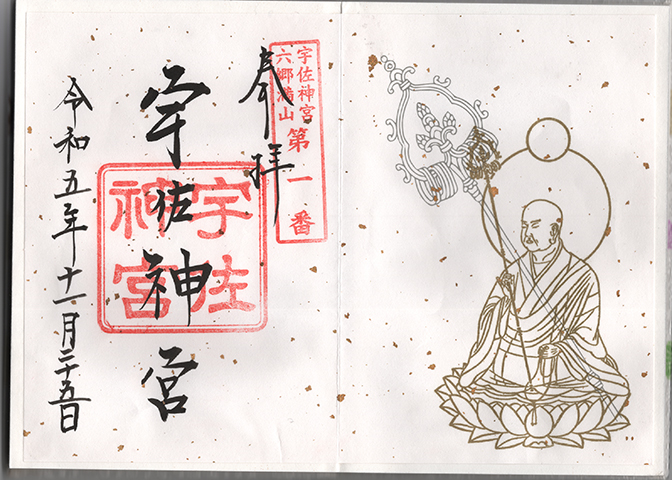 宇佐神宮
六郷満山
第一番
奉拝
宇佐神宮
宇佐
神宮
令和五年十一月二十五日